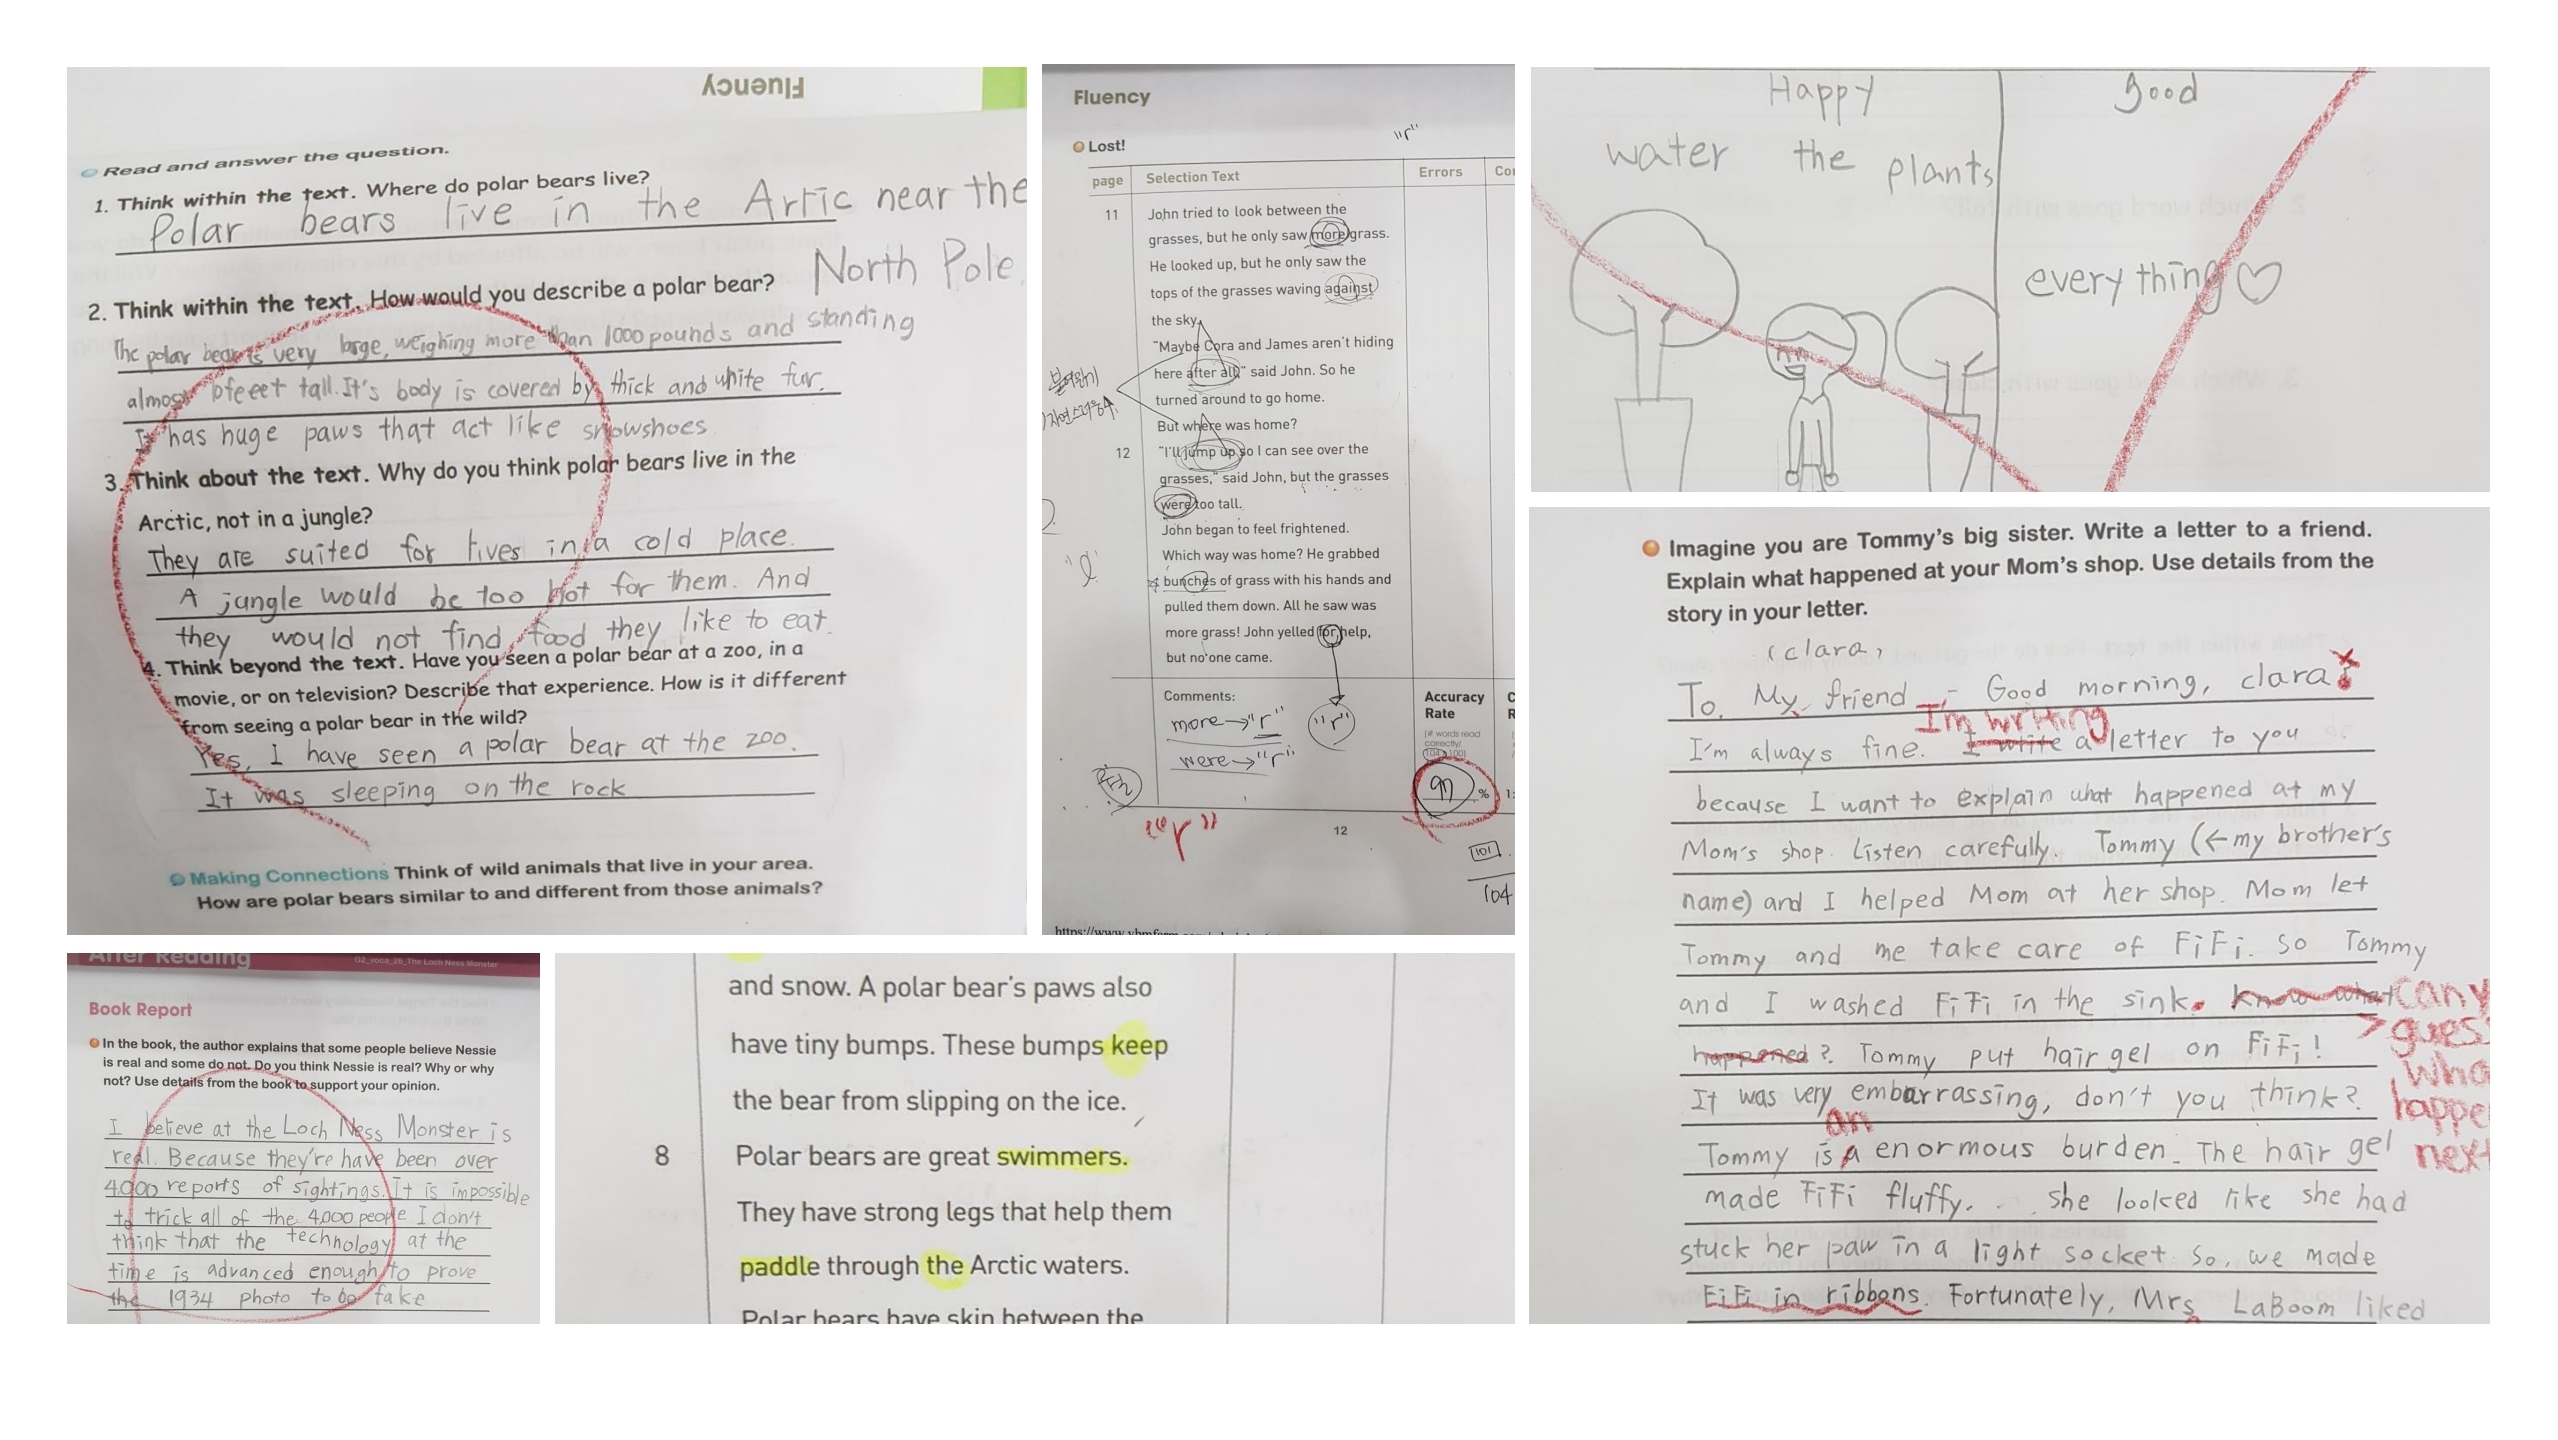 Fluency
Read and answer the question.
1. Think within the text. Where do polar bears live?
Polar bears live in the Artic near the
North Pole.
2. Think within the text. How would you describe a polar bear?
The polar bear is very large, weighing more than 1000 pounds and standing
almost feeet tall. It's body is covered by thick and white fur.
It has huge paws that act like snowshoes
3. Think about the text. Why do you think polar bears live in the
Arctic, not in a jungle?
They are suited for lives in a cold place.
A jungle would be too hot for them. And
they would not find food they like to eat.
4. Think beyond the text. Have you seen a polar bear at a zoo, in a
movie, or on television? Describe that experience. How is it different
from seeing a polar bear in the wild?
Yes, I have seen a polar bear at the zoo.
It was sleeping on the rock
Making Connections Think of wild animals that live in your area.
How are polar bears similar to and different from those animals?
Fluency
"r"
Lost!
page Selection Text Errors
11 John tried to look between the
grasses, but he only saw more grass.
He looked up, but he only saw the
tops of the grasses waving against
the sky.
"Maybe Cora and James aren't hiding
here after all," said John. So he
turned around to go home.
But where was home?
12 "I'll jump up so I can see over the
grasses," said John, but the grasses
were too tall.
John began to feel frightened.
Which way was home? He grabbed
"l"
bunches of grass with his hands and
pulled them down. All he saw was
more grass! John yelled for help,
but no one came.
Comments:
more → "r"
were → "r"
"r"
Accuracy
Rate
(# words read
correctly/
104 x 100)
97 %
"r"
12
101
104
Happy
good
water the plants
everything♡
Imagine you are Tommy's big sister. Write a letter to a friend.
Explain what happened at your Mom's shop. Use details from the
story in your letter.
(clara,
To. My friend - Good morning, clara?
I'm writing
I'm always fine. I write a letter to you
because I want to explain what happened at my
Mom's shop. Listen carefully. Tommy (←my brother's
name) and I helped Mom at her shop. Mom let
Tommy and me take care of FiFi. so Tommy
and I washed FiFi in the sink. Know what
happened?. Tommy put hair gel on FiFi!
It was very embarrassing, don't you think?.
an
Tommy is a enormous burden. The hair gel
made FiFi fluffy. She looked like she had
stuck her paw in a light socket. So, we made
FiFi in ribbons. Fortunately, Mrs LaBoom liked
Can y
happe
next
After Reading
G2_voca_26_The Loch Ness Monster
Book Report
In the book, the author explains that some people believe Nessie
is real and some do not. Do you think Nessie is real? Why or why
not? Use details from the book to support your opinion.
I believe at the Loch Ness Monster is
real. Because they're have been over
4,000 reports of sightings. It is impossible
to trick all of the 4,000 people I don't
think that the technology at the
time is advanced enough to prove
the 1934 photo to be fake
and snow. A polar bear's paws also
have tiny bumps. These bumps keep
the bear from slipping on the ice.
8 Polar bears are great swimmers.
They have strong legs that help them
paddle through the Arctic waters.
Polar bears have skin between the